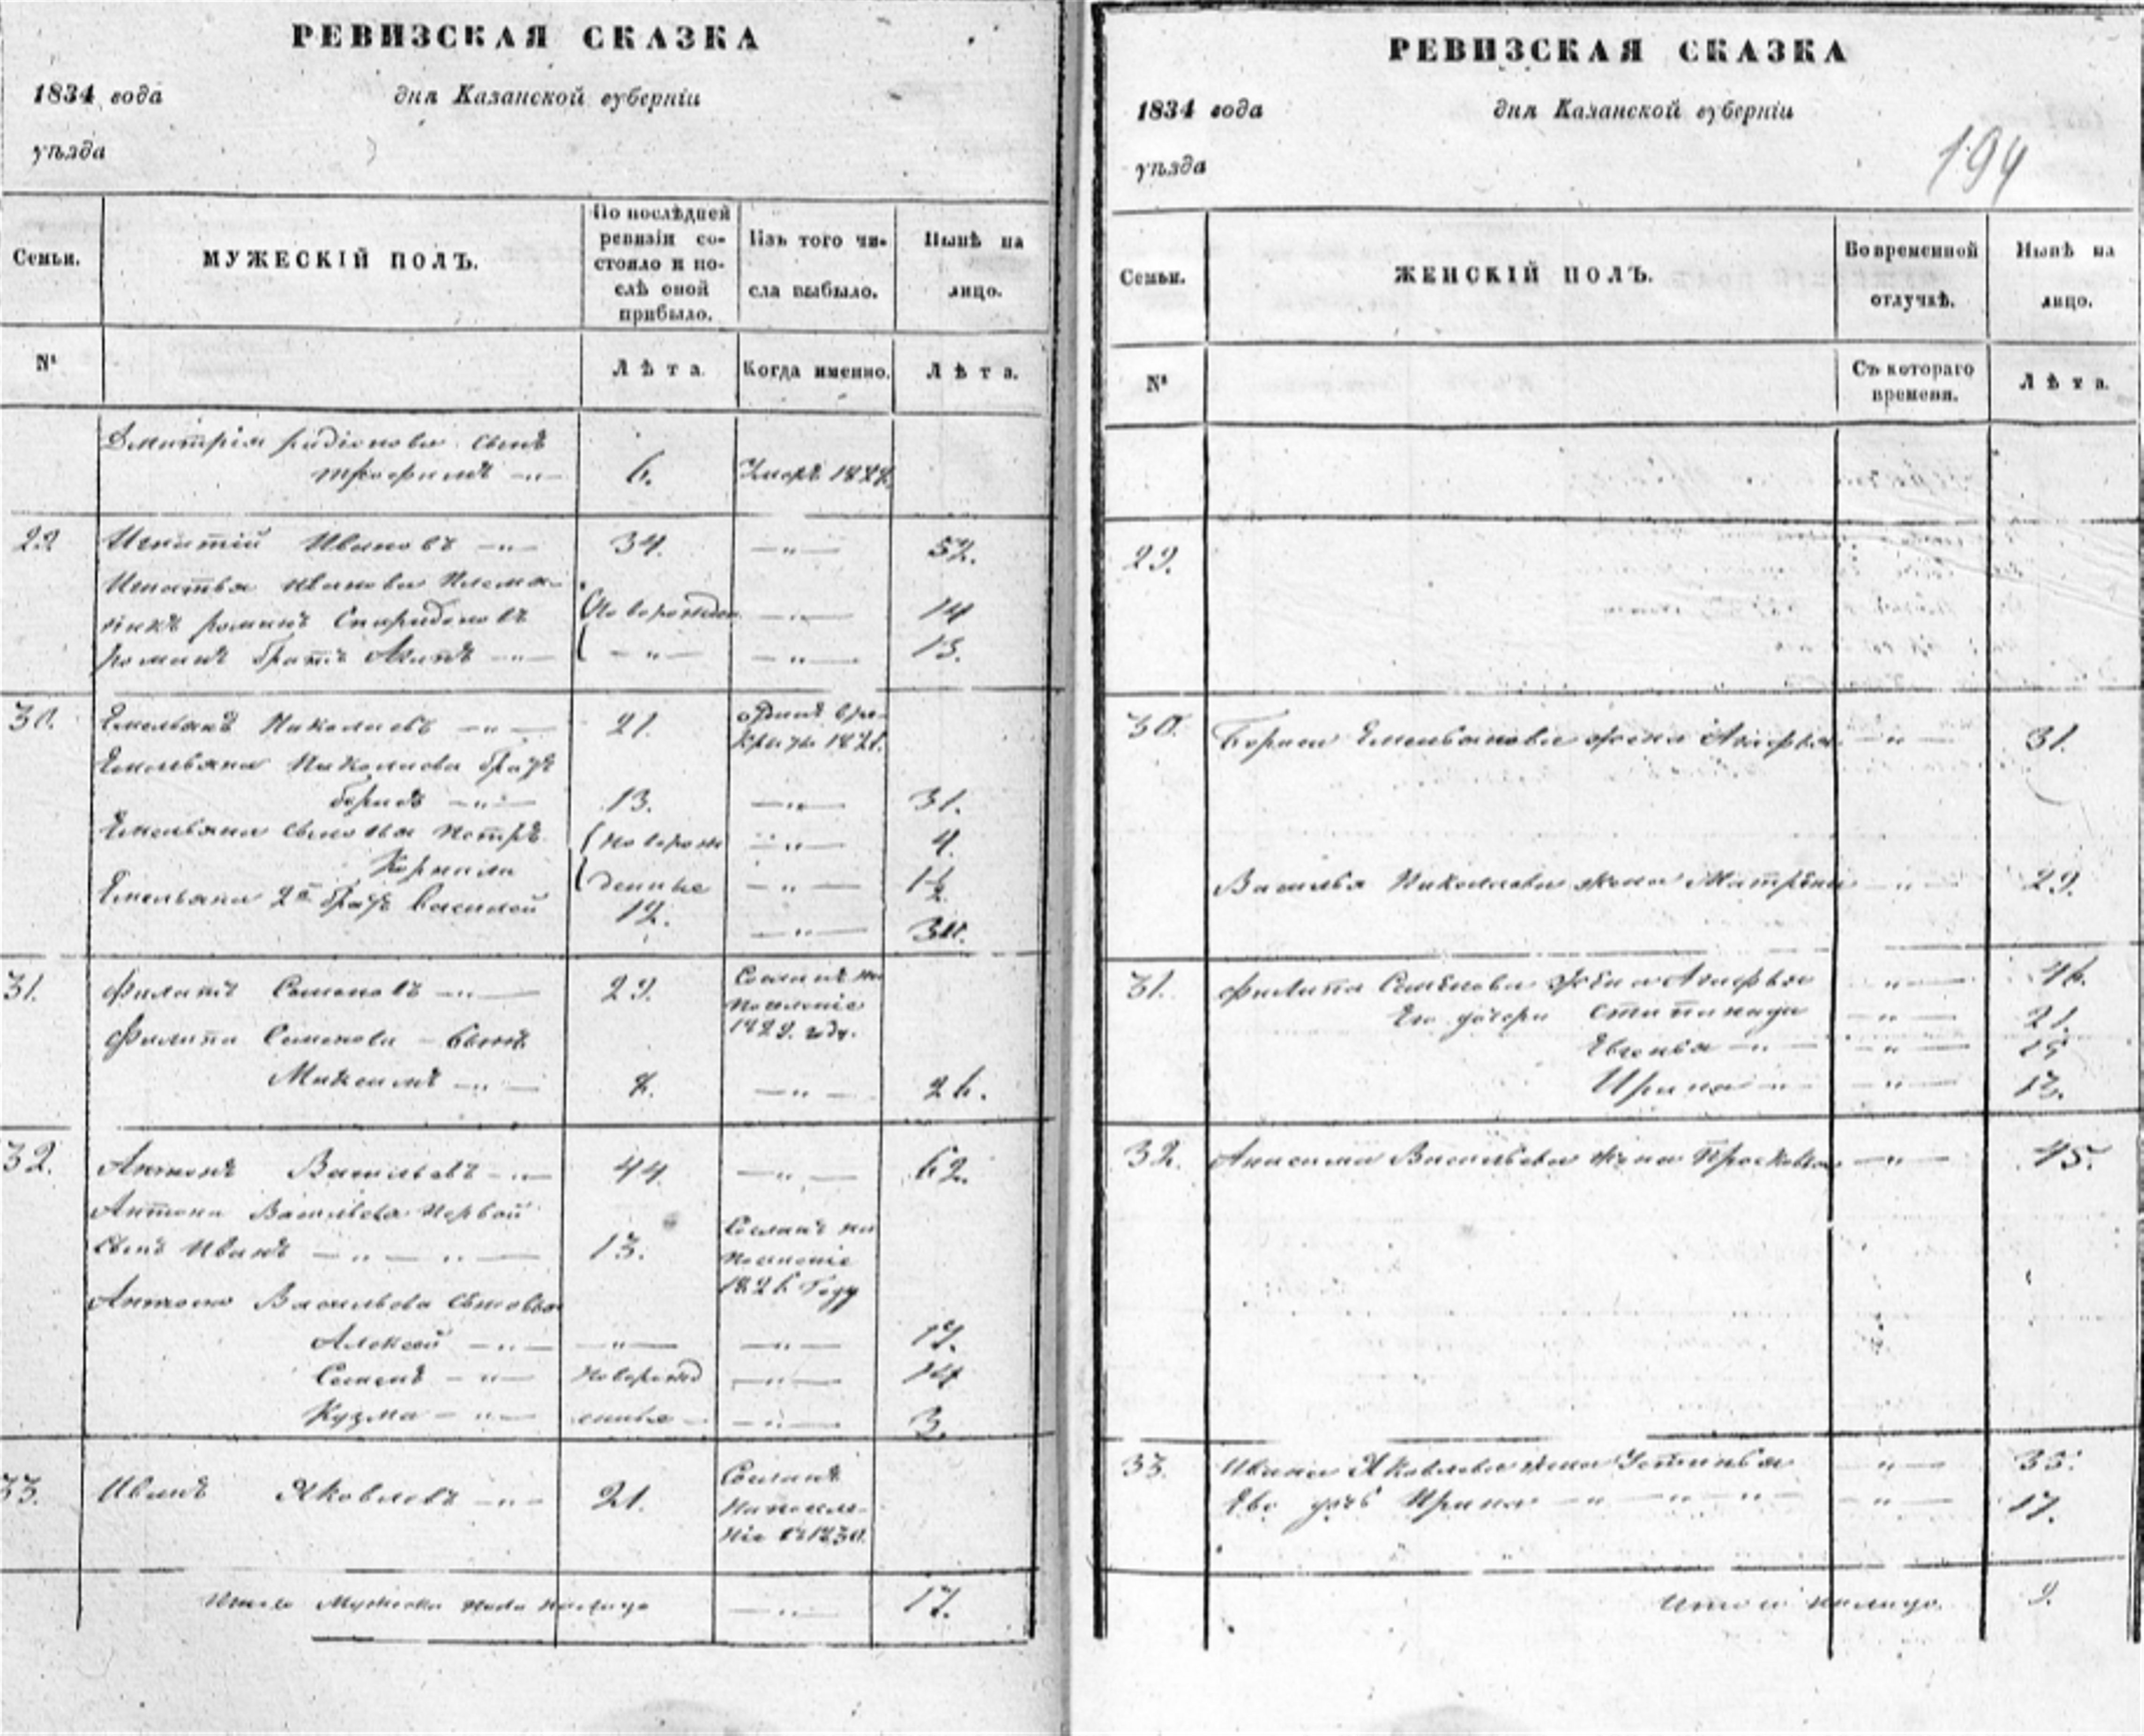 РЕВИЗСКАЯ СКАЗКА
1834 года дня Казанской губерніи
уѣзда
Семьи.
МУЖЕСКІЙ ПОЛЪ.
По послѣдней
ревизіи со-
стояло и по-
слѣ оной
прибыло.
Изъ того чи-
сла выбыло.
Нынѣ на
лицо.
№
Лѣта.
Когда именно.
Лѣта.
Дмитрія Радіонова сынъ
Трофимъ 6. Умеръ 1827.
29 Игнатій Ивановъ 34. 52.
Игнатья Иванова племя-
никъ Романъ Спиридоновъ 14
Романъ братъ 13.
30. Емельянъ Николаевъ 21.
1821.
Емельяна Николаева братъ
Борисъ 13. 31.
Емельяна сыновья Петръ новорож 4.
Корнила денные 1½
Емельяна 2й братъ Василей 12. 30.
31. Филипъ Семеновъ 29. Сосланъ на
поселеніе
1829. году.
Филипа Семенова сынъ
Максимъ 8. 26.
32. Антонъ Васильевъ 44. 62.
Антона Васильева первой
сынъ Иванъ 13. Сосланъ на
поселеніе
1826 году
Антона Васильева сыновья
Алексей 17.
Семенъ новорожд 14
Кузма енные 3.
33. Иванъ Яковлевъ 21. Сосланъ
на поселе-
ніе въ 1830.
Итого мужеска пола налицо 17.
РЕВИЗСКАЯ СКАЗКА
1834 года дня Казанской губерніи
194
уѣзда
Семьи.
ЖЕНСКІЙ ПОЛЪ.
Во временной
отлучкѣ.
Нынѣ на
лицо.
№
Съ котораго
времени.
Лѣта.
29.
30. Бориса Емельянова жена Агафья 31.
Василья Николаева жена Матрена 29.
31. Филипа Семенова жена Агафья 46.
Его дочери Степанида 21.
Евгенья 15
Ирина 13.
32. Васильева жена Прасковья 45.
33. Ивана Яковлева жена Устинья 35.
Ево дочь Ирина 17.
Итого налицо. 9.